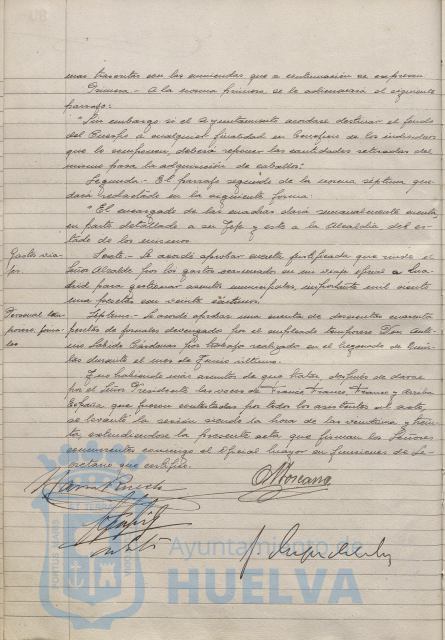 mas transitas con las enmiendas que a continuación se expresan
Primera.- A la norma primera se le adicionará el siguiente
párrafo:
"Sin embargo si el Ayuntamiento acordase destinar el fondo
del Cuerpo a cualquier finalidad en beneficio de los individuos
que lo componen, deberá reponer las cantidades retiradas del
mismo para la adquisición de caballos."
Segunda.- El párrafo segundo de la norma séptima que-
dará redactado en la siguiente forma:
"El encargado de las cuadras dará semanalmente cuenta
en parte detallado a su Jefe y este a la Alcaldía del es-
tado de los mismos.
Gastos via-
jes.
Sexto.- Se acordó aprobar cuenta justificada que rinde el
Señor Alcalde por los gastos ocasionados en un viaje oficial a Ma-
drid para gestionar asuntos municipales importante mil ciento
una pesetas con veinte céntimos.
Personal tem-
porero, jorna-
les
Séptimo.- Se acordó aprobar una cuenta de doscientas cuarenta
pesetas de jornales devengados por el empleado temporero Don Anto-
nio Cárdenas por trabajo realizado en el Negociado de Quin-
tas durante el mes de Junio último.
Y no habiendo más asuntos de que tratar después de darse
por el Señor Presidente las voces de Franco, Franco, Franco y Arriba
España que fueron contestadas por todos los asistentes al acto,
se levantó la sesión siendo la hora de las veintiuna y trein-
ta, extendiéndose la presente acta que firman los Señores
concurrentes conmigo el Oficial Mayor en funciones de Se-
cretario que certifico.
Ayuntamiento de
HUELVA